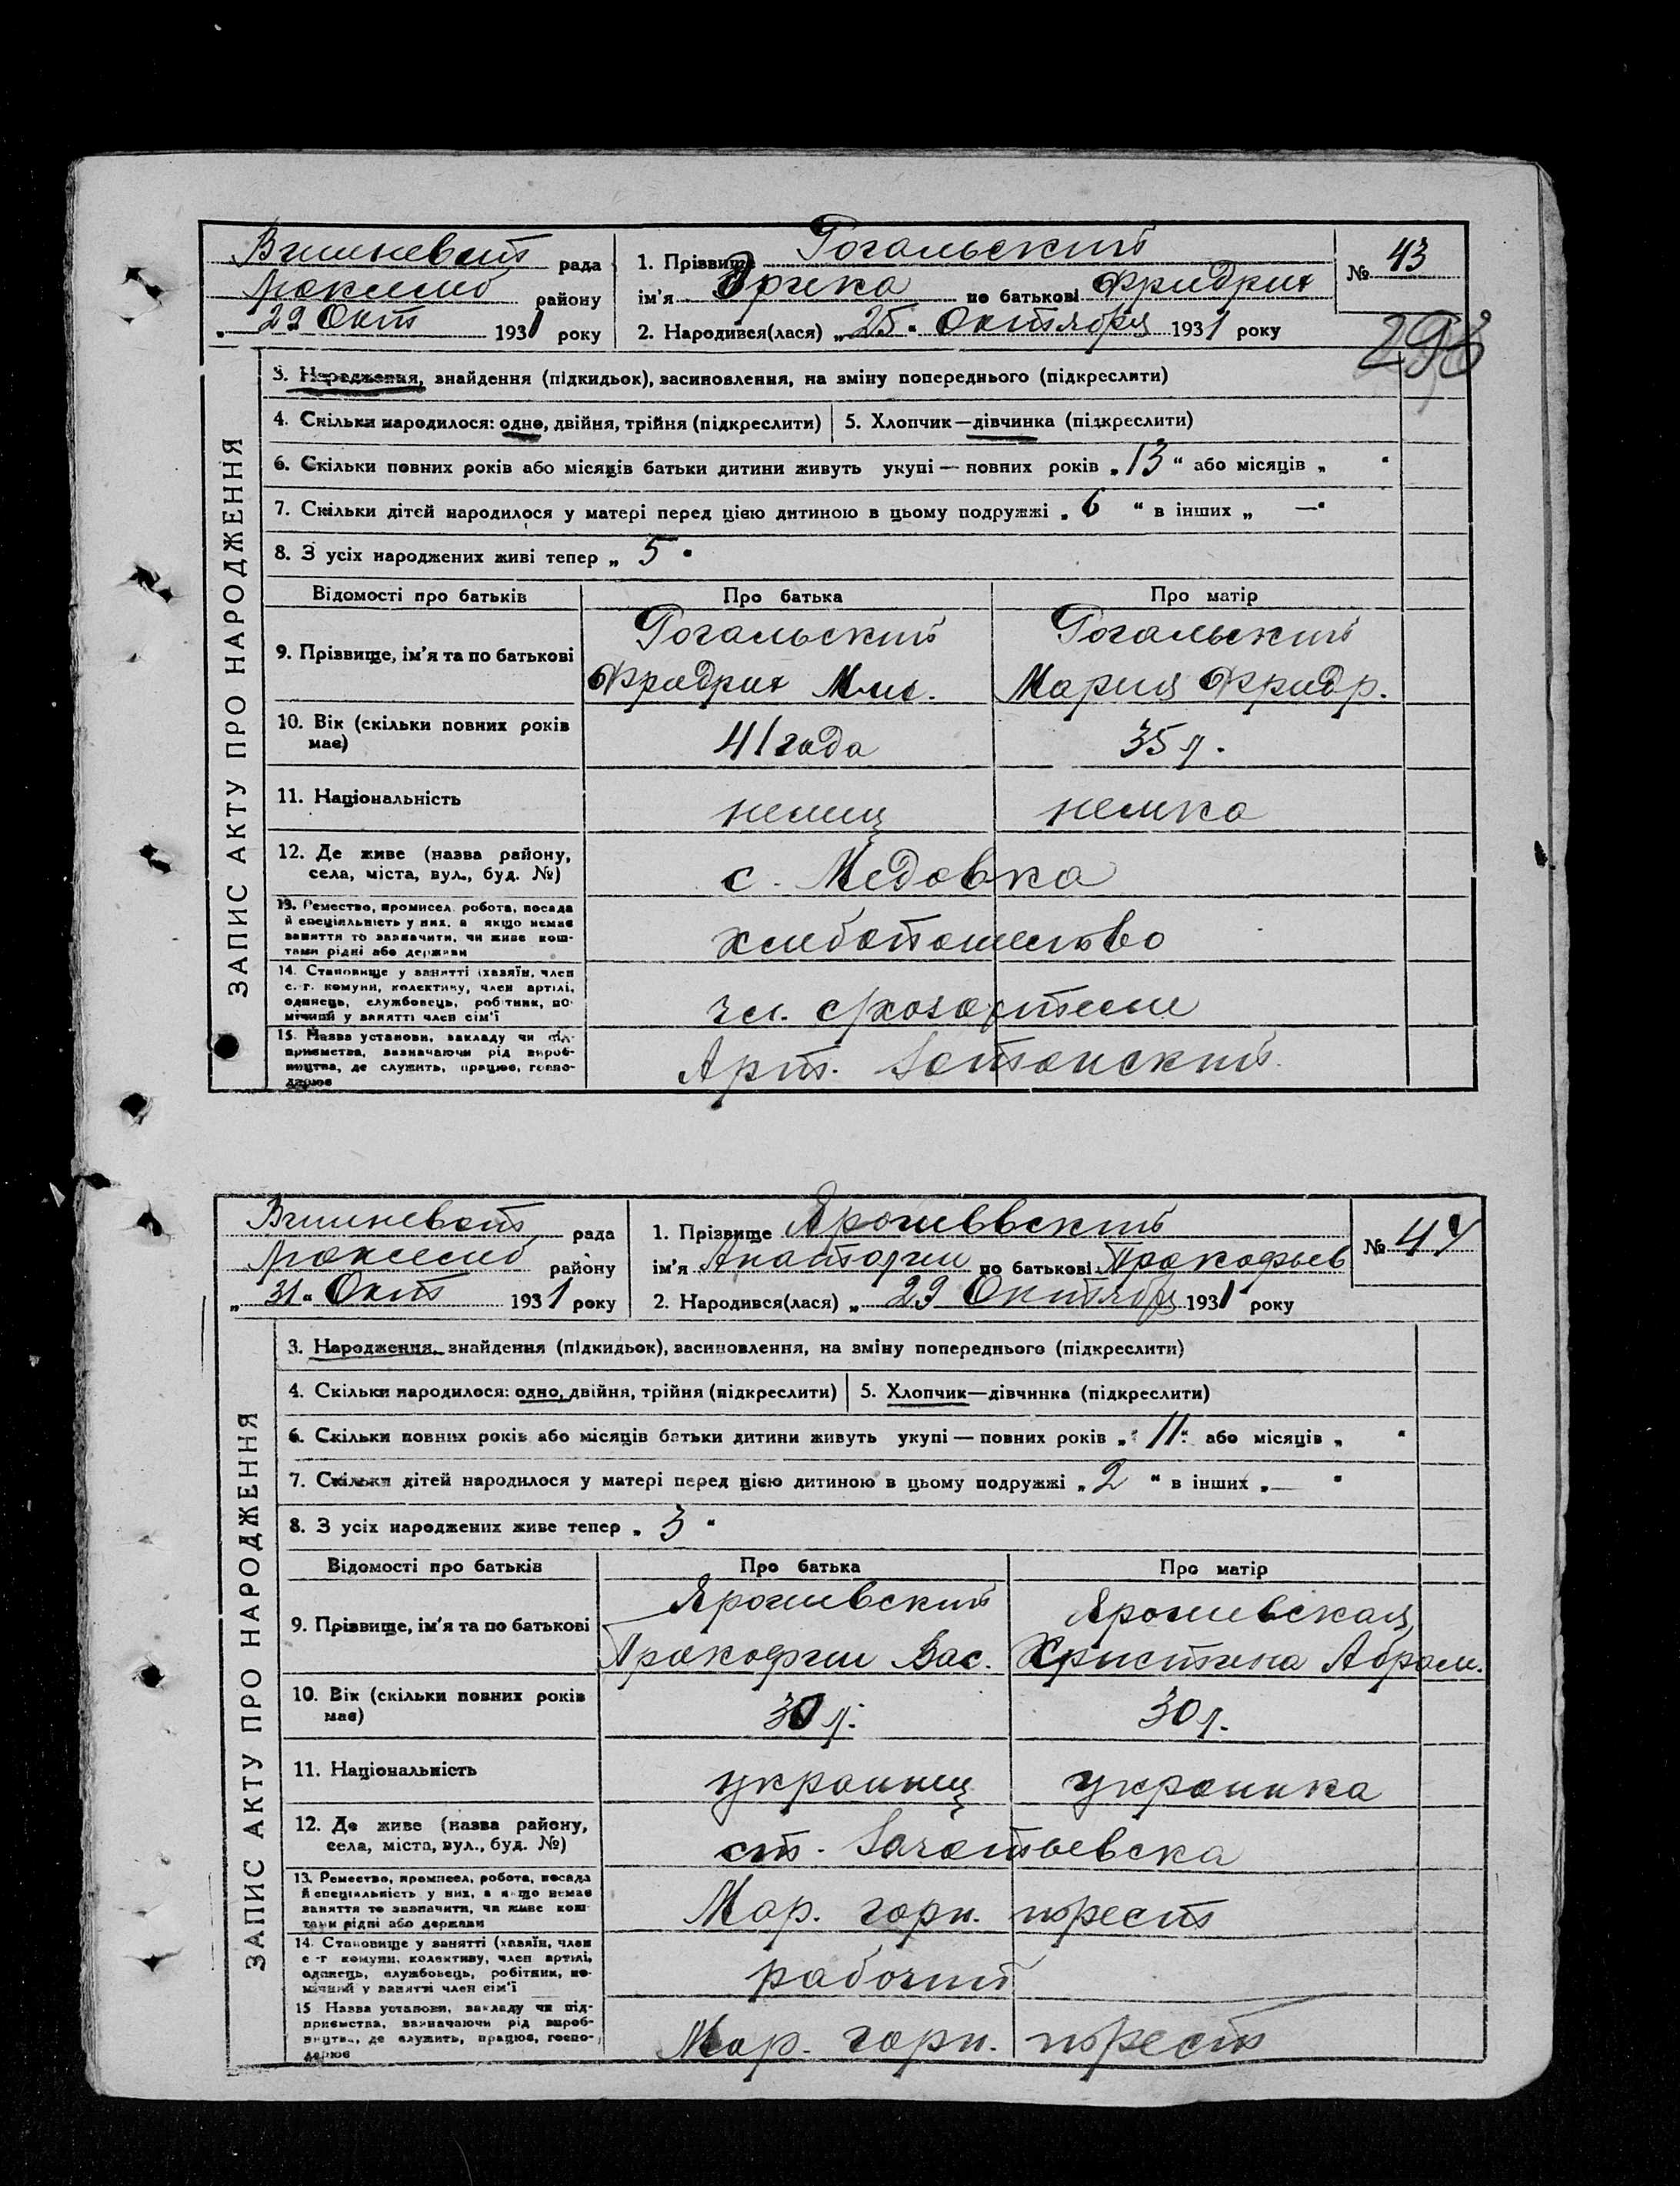 Вишневат рада
района району
„ 29 Окт 1931 року
1. Прізвище Рогальский
ім'я Эрика по батькові Фридрих
2. Народився(лася) „25" Октября 1931 року
№ 43
298
ЗАПИС АКТУ ПРО НАРОДЖЕННЯ
3. Народження, знайдення (підкидьок), засиновлення, на зміну попереднього (підкреслити)
4. Скільки народилося: одно, двійня, трійня (підкреслити) 5. Хлопчик—дівчинка (підкреслити)
6. Скільки повних років або місяців батьки дитини живуть укупі — повних років „13" або місяців „ "
7. Скільки дітей народилося у матері перед цією дитиною в цьому подружжі „6" в інших „ —"
8. З усіх народжених живі тепер „5"
Відомості про батьків Про батька Про матір
9. Прізвище, ім'я та по батькові
Рогальский Рогальский
Фридрих Мих. Мария Фридр.
10. Вік (скільки повних років має) 41 года 35 л.
11. Національність немец немка
12. Де живе (назва району, села, міста, вул., буд. №) с. Медовка
13. Ремество, промисел, робота, посада
й спеціяльність у них, а якщо немає
заняття то зазначити, чи живе кош-
тами рідні або держави
хлебопашество
14. Становище у занятті (хазяїн, член
с.-г. комуни, колективу, член артілі,
одинець, службовець, робітник, по-
мічний у занятті член сім'ї
чл. с/хозартели
15. Назва установи, закладу чи під-
приємства, зазначаючи рід вироб-
ництва, де служить, працює, госпо-
дарює
Арт.
Вишневат рада
району
„ 31" Окт 1931 року
1. Прізвище Ярошеввский
ім'я Анатолии по батькові Прокофьев
2. Народився(лася) „ 29 Октября 1931 року
№ 44
ЗАПИС АКТУ ПРО НАРОДЖЕННЯ
3. Народження, знайдення (підкидьок), засиновлення, на зміну попереднього (підкреслити)
4. Скільки народилося: одно, двійня, трійня (підкреслити) 5. Хлопчик—дівчинка (підкреслити)
6. Скільки повних років або місяців батьки дитини живуть укупі — повних років „11" або місяців „ "
7. Скільки дітей народилося у матері перед цією дитиною в цьому подружжі „2" в інших „— "
8. З усіх народжених живе тепер „3"
Відомості про батьків Про батька Про матір
9. Прізвище, ім'я та по батькові
Ярошевский Ярошевская
Прокофии Вас. Христина Абрам.
10. Вік (скільки повних років має) 30 л. 30 л.
11. Національність украинец украинка
12. Де живе (назва району, села, міста, вул., буд. №) ст. Зачатьевска
13. Ремество, промисел, робота, посада
й спеціяльність у них, а якщо немає
заняття то зазначити, чи живе кош-
тами рідні або держави
Мар. горн. трест
14. Становище у занятті (хазяїн, член
с.-г. комуни, колективу, член артілі,
одинець, службовець, робітник, по-
мічний у занятті член сім'ї
рабочий
15. Назва установи, закладу чи під-
приємства, зазначаючи рід вироб-
ництва, де служить, працює, госпо-
дарює
Мар. горн. трест